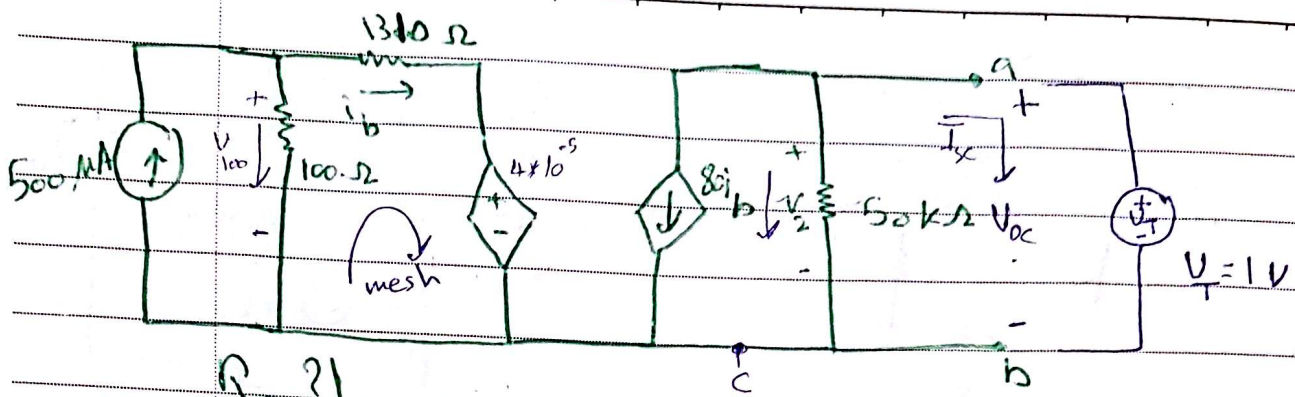 1310 Ω
i b →
a
+
500 μA
+
V 100
-
100 Ω
mesh
4*10^-5
+
-
80i b
+
V 2
-
50 kΩ
I sc
V oc
-
+
V T
-
V T = 1 V
c
b